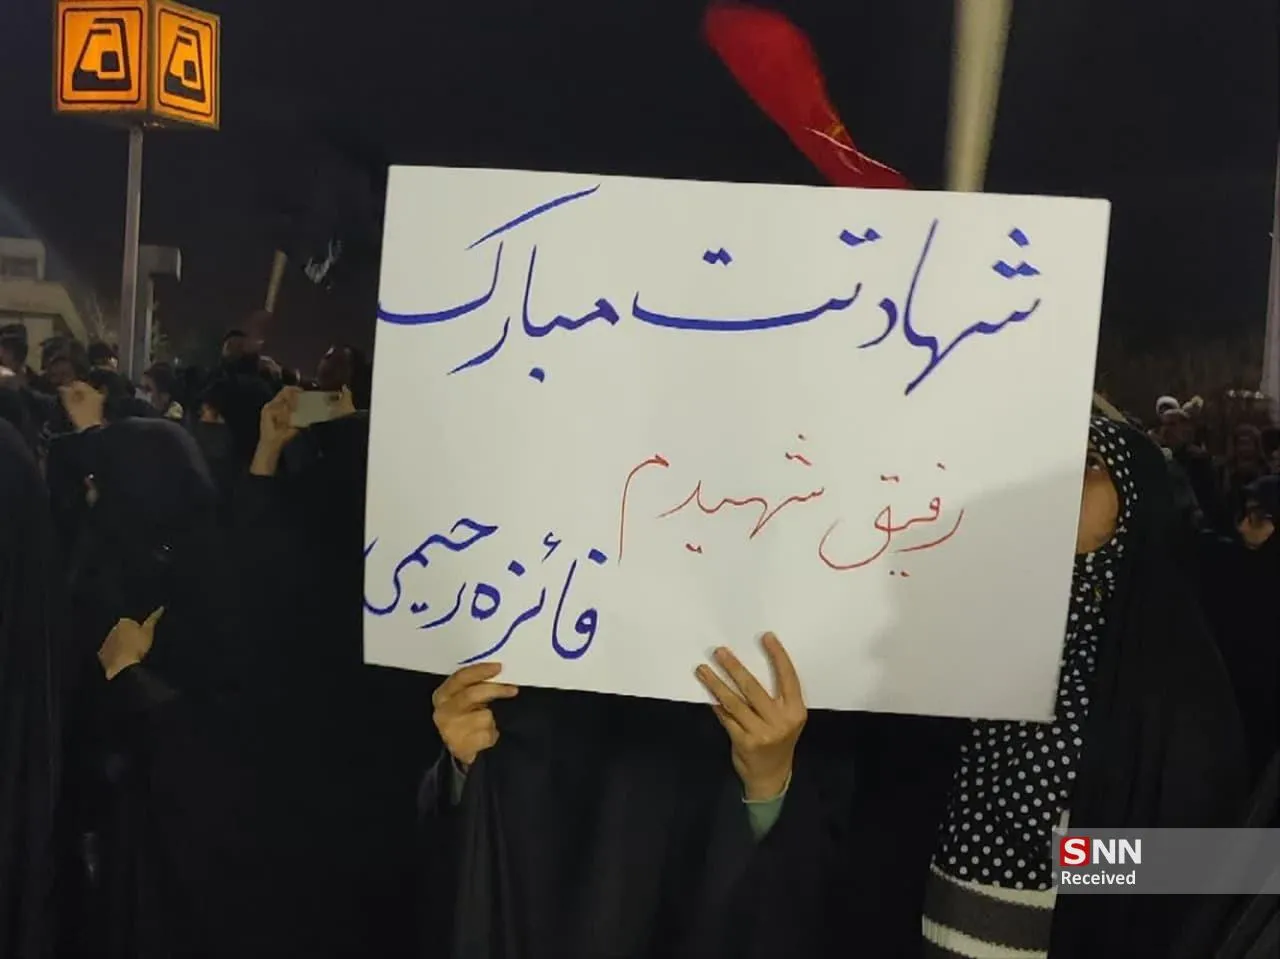 شهادتت مبارک
رفیق شهیدم
فائزه رحیمی
SNN
Received